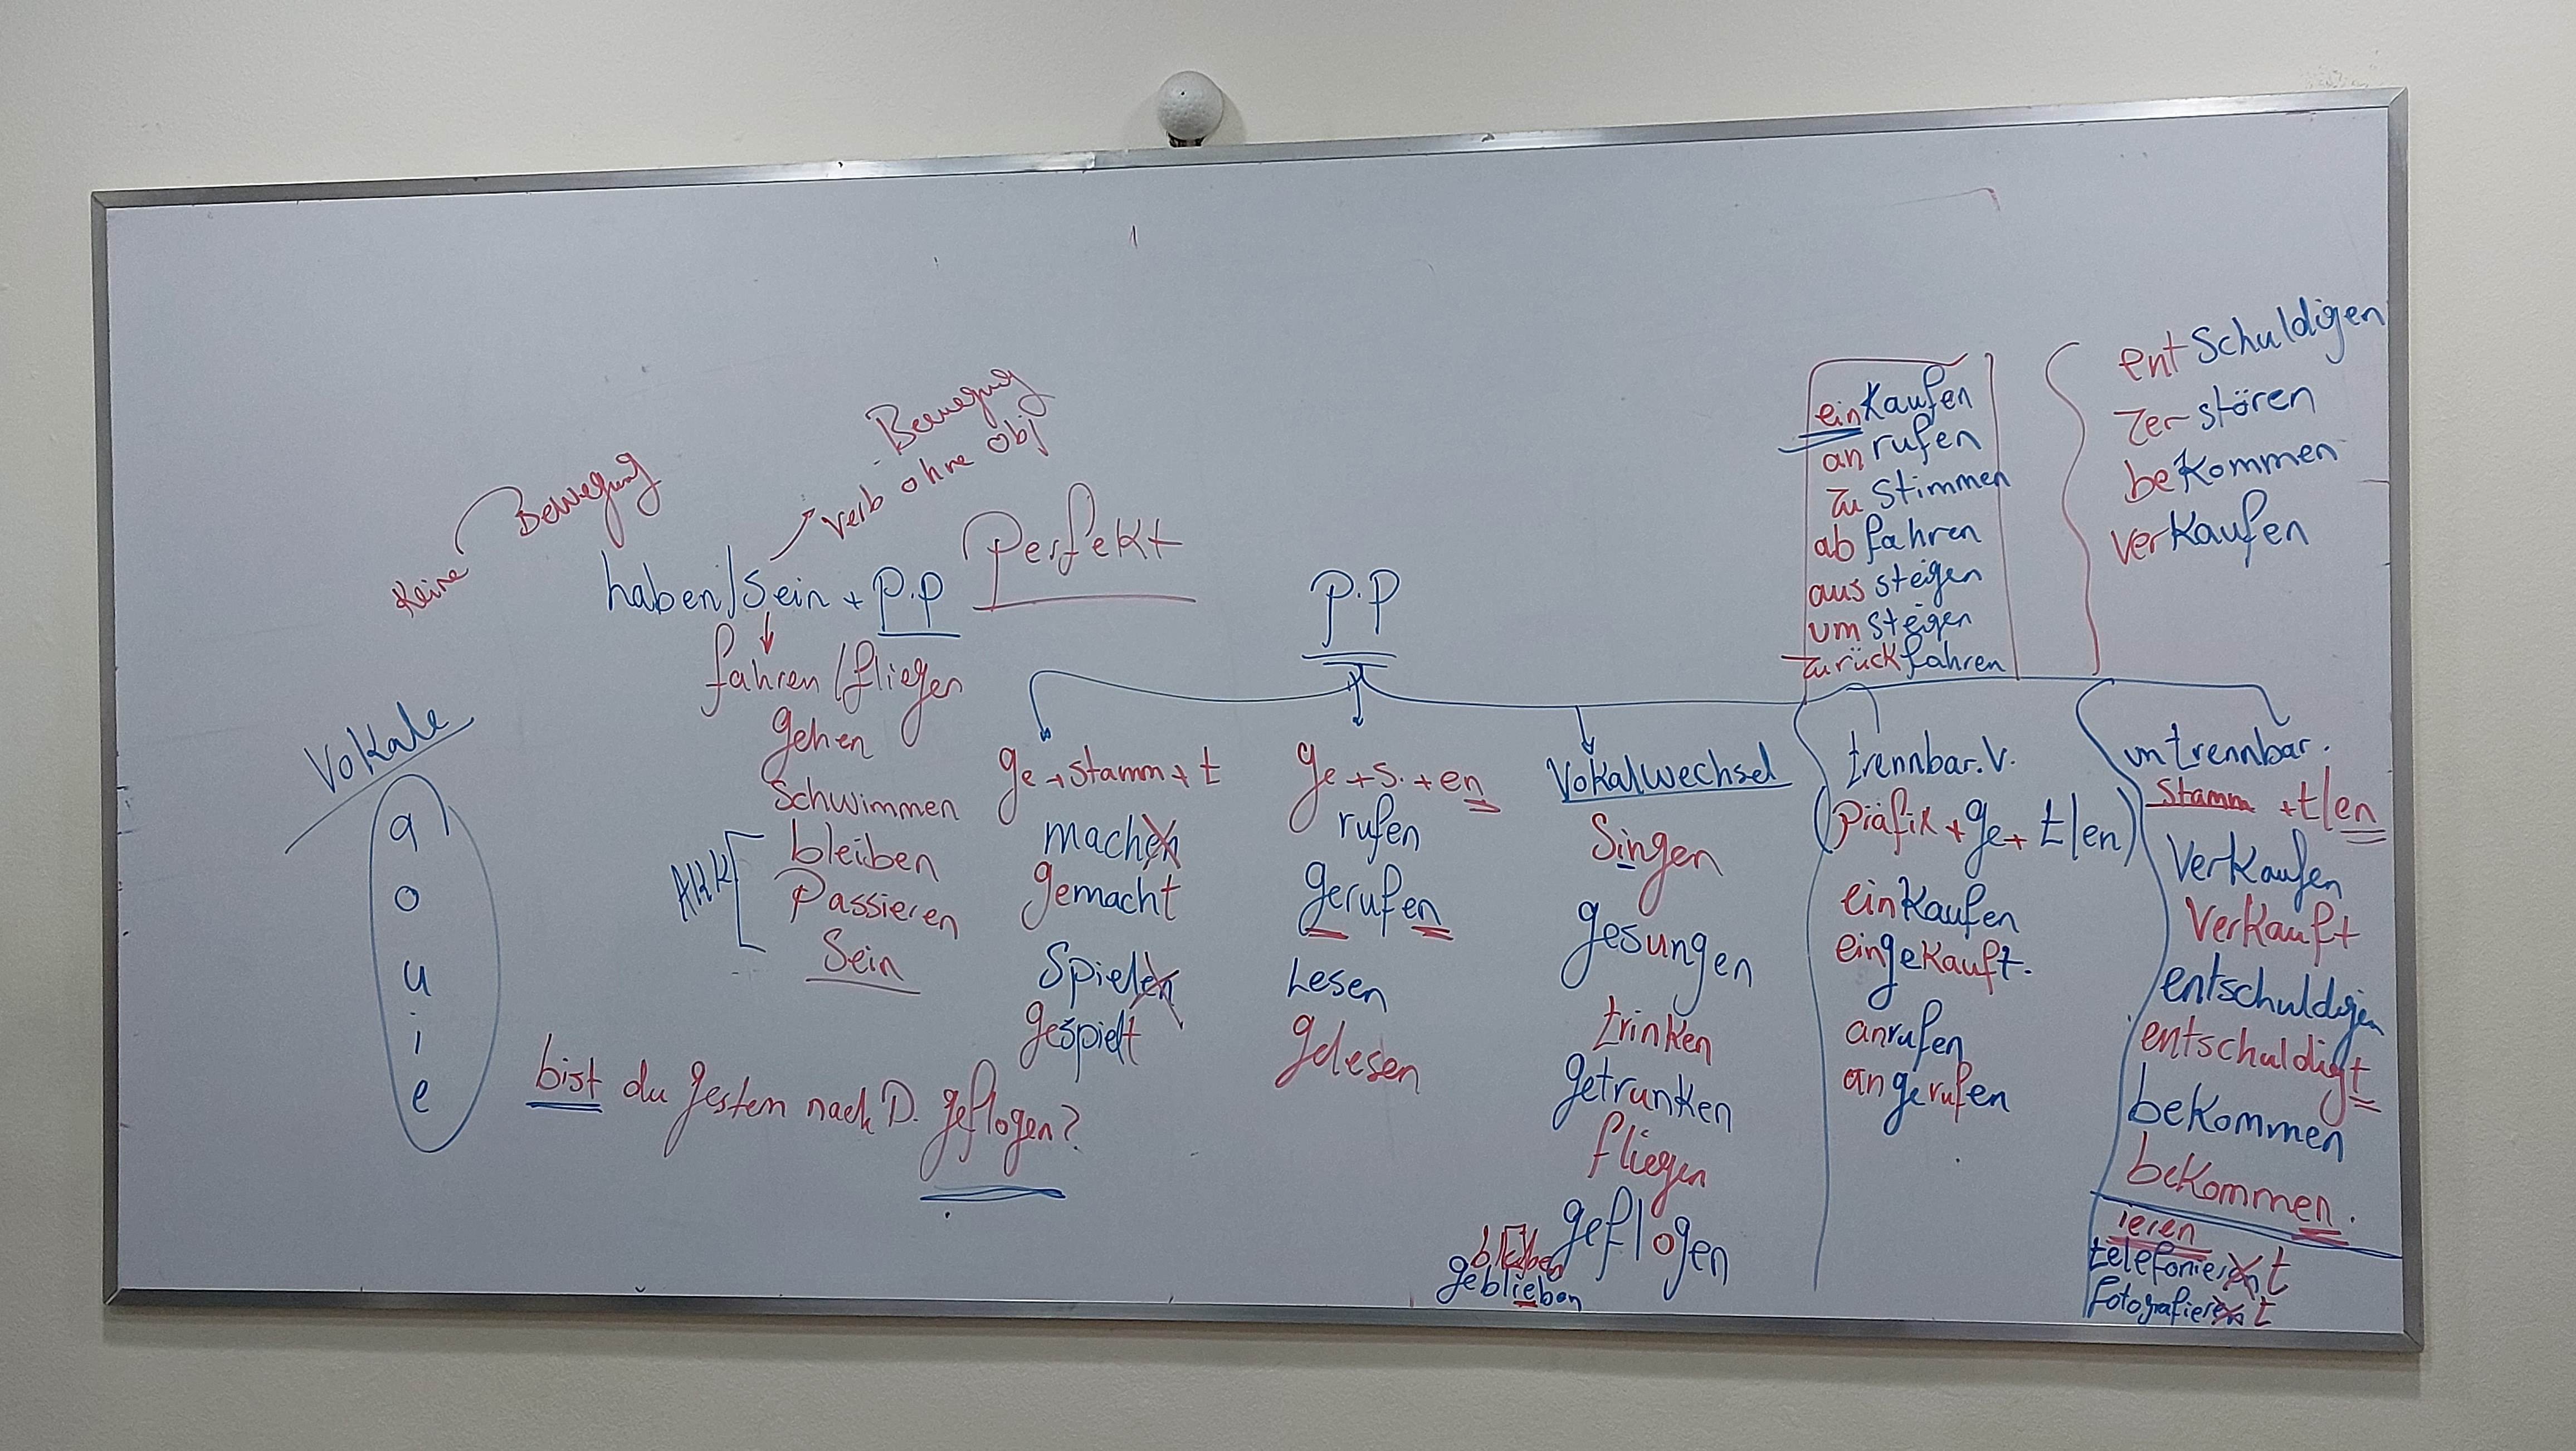 Keine Bewegung
Bewegung
verb ohne Obj
haben/sein + P.P
Perfekt
fahren/fliegen
gehen
Schwimmen
bleiben
Passieren
Sein
AKK
Vokale
a
o
u
i
e
bist du gestern nach D. geflogen?
P.P
ge + stamm + t
machen
gemacht
Spielen
gespielt
ge + s. + en
rufen
gerufen
Lesen
gelesen
Vokalwechsel
Singen
gesungen
trinken
getrunken
fliegen
geflogen
bleiben
geblieben
einkaufen
an rufen
zu stimmen
ab fahren
aus steigen
um steigen
zurückfahren
trennbar. V.
(Präfix + ge + t/en)
einkaufen
eingekauft.
anrufen
angerufen
ent Schuldigen
Zer stören
bekommen
verkaufen
untrennbar.
Stamm + t/en
Verkaufen
Verkauft
entschuldigen
entschuldigt
bekommen
bekommen.
ieren
telefonieren t
fotografieren t